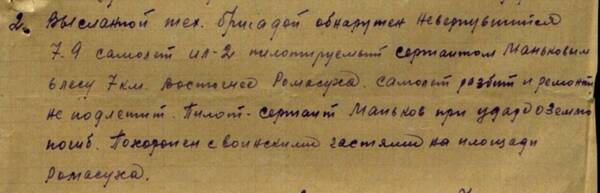 2. Высланной тех. бригадой обнаружен невернувшийся
7.9 самолет ил-2 пилотируемый сержантом Маньковым
в лесу 7 км. восточнее Ромасуха. самолет разбит и ремонту
не подлетит. Пилот-сержант Маньков при ударе о землю
погиб. Похоронен с воинскими частями на площади
Ромасуха.